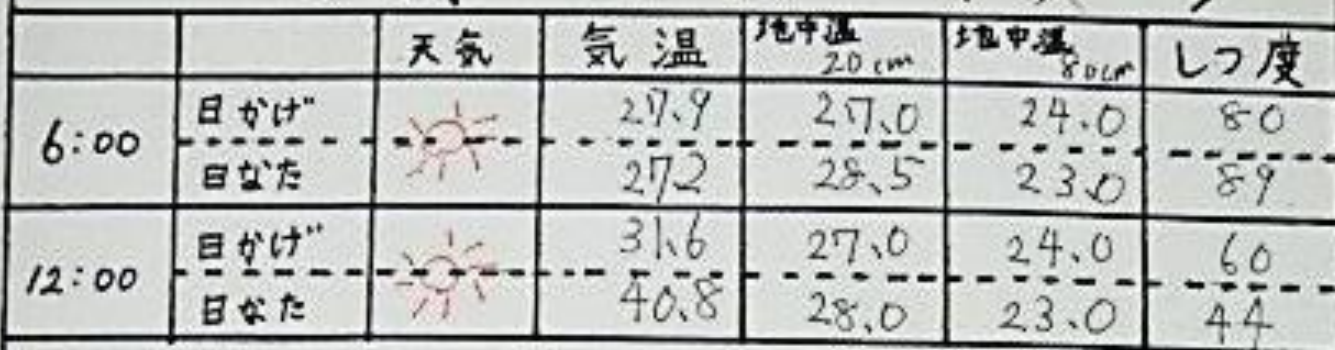 天気 気温 地中温20cm 地中温80cm しつ度
6:00 日かげ 27.9 27.0 24.0 80
日なた 27.2 28.5 23.0 89
12:00 日かげ 31.6 27.0 24.0 60
日なた 40.8 28.0 23.0 44